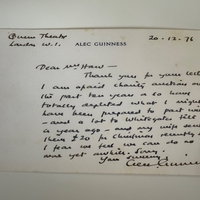 Queens Theatre
London W.1. ALEC GUINNESS 20-12-76
Dear Mr
Thank you for your letter
I am afraid charity auctions over
the past ten years or so have
totally depleted what I might
have been prepared to part with
- and a lot to Whitegate till
a year ago - and my wife sent
them £20 for Christmas recently so
I fear we feel we can do no
more yet awhile. Sorry.
Yours sincerely,
Alec Guinness